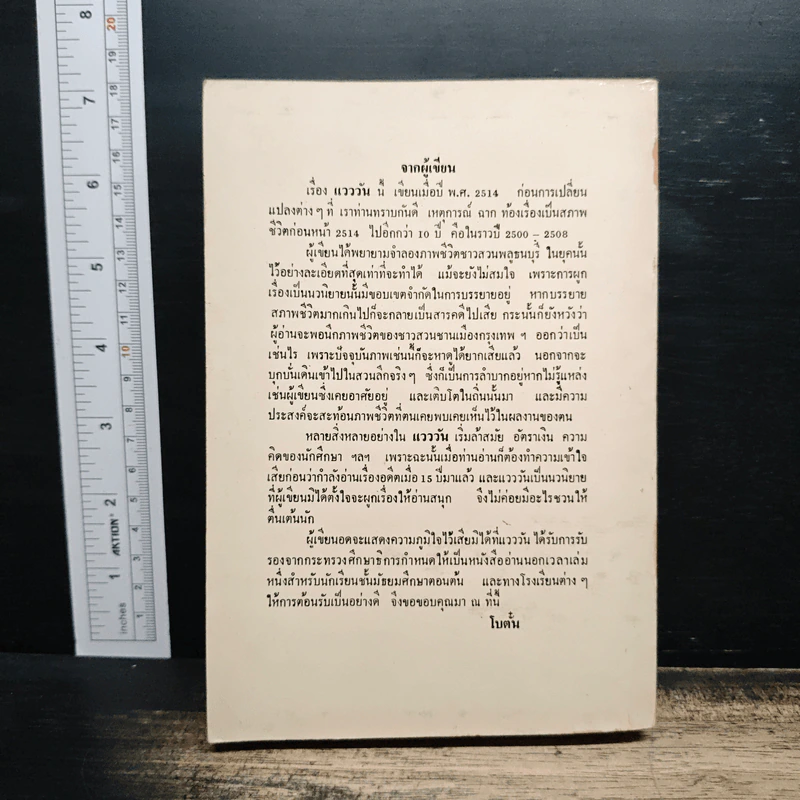 จากผู้เขียน
เรื่อง แวววัน นี้ เขียนเมื่อปี พ.ศ. 2514 ก่อนการเปลี่ยน
แปลงต่าง ๆ ที่ เราท่านทราบกันดี เหตุการณ์ ฉาก ท้องเรื่องเป็นสภาพ
ชีวิตก่อนหน้า 2514 ไปอีกกว่า 10 ปี คือในราวปี 2500 – 2508
ผู้เขียนได้พยายามจำลองภาพชีวิตชาวสวนพลูธนบุรี ในยุคนั้น
ไว้อย่างละเอียดที่สุดเท่าที่จะทำได้ แม้จะยังไม่สมใจ เพราะการผูก
เรื่องเป็นนวนิยายนั้นมีขอบเขตจำกัดในการบรรยายอยู่ หากบรรยาย
สภาพชีวิตมากเกินไปก็จะกลายเป็นสารคดีไปเสีย กระนั้นก็ยังหวังว่า
ผู้อ่านจะพอนึกภาพชีวิตของชาวสวนชานเมืองกรุงเทพ ฯ ออกว่าเป็น
เช่นไร เพราะปัจจุบันภาพเช่นนี้ก็จะหาดูได้ยากเสียแล้ว นอกจากจะ
บุกบั่นเดินเข้าไปในสวนลึกจริงๆ ซึ่งก็เป็นการลำบากอยู่หากไม่รู้แหล่ง
เช่นผู้เขียนซึ่งเคยอาศัยอยู่ และเติบโตในถิ่นนั้นมา และมีความ
ประสงค์จะสะท้อนภาพชีวิตที่ตนเคยพบเคยเห็นไว้ในผลงานของตน
หลายสิ่งหลายอย่างใน แวววัน เริ่มล้าสมัย อัตราเงิน ความ
คิดของนักศึกษา ฯลฯ เพราะฉะนั้นเมื่อท่านอ่านก็ต้องทำความเข้าใจ
เสียก่อนว่ากำลังอ่านเรื่องอดีตเมื่อ 15 ปีมาแล้ว และแวววันเป็นนวนิยาย
ที่ผู้เขียนมิได้ตั้งใจจะผูกเรื่องให้อ่านสนุก จึงไม่ค่อยมีอะไรชวนให้
ตื่นเต้นนัก
ผู้เขียนอดจะแสดงความภูมิใจไว้เสียมิได้ที่แวววัน ได้รับการรับ
รองจากกระทรวงศึกษาธิการกำหนดให้เป็นหนังสืออ่านนอกเวลาเล่ม
หนึ่งสำหรับนักเรียนชั้นมัธยมศึกษาตอนต้น และทางโรงเรียนต่าง ๆ
ให้การต้อนรับเป็นอย่างดี จึงขอขอบคุณมา ณ ที่นี้
โบตั๋น
8
7
6
5
4
3
2
1
inches
AKTION
20
19
18
17
16
15
14
13
12
11
10
9
8
7
6
5
4
3
2
1